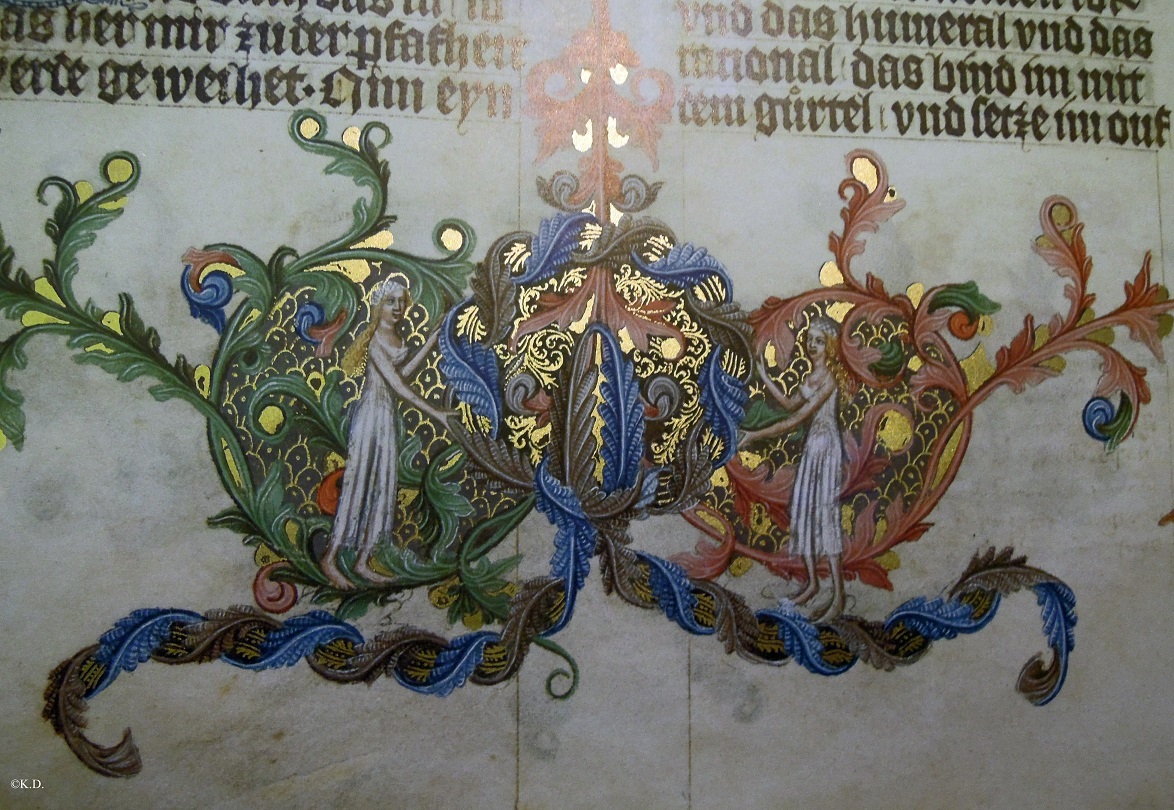 as her mir zuder pfafheit
werde geweihet· Nim eyn
vnd das humeral vnd das
racional das bind im mit
dem gůrtel vnd setze im ouf
©K.D.